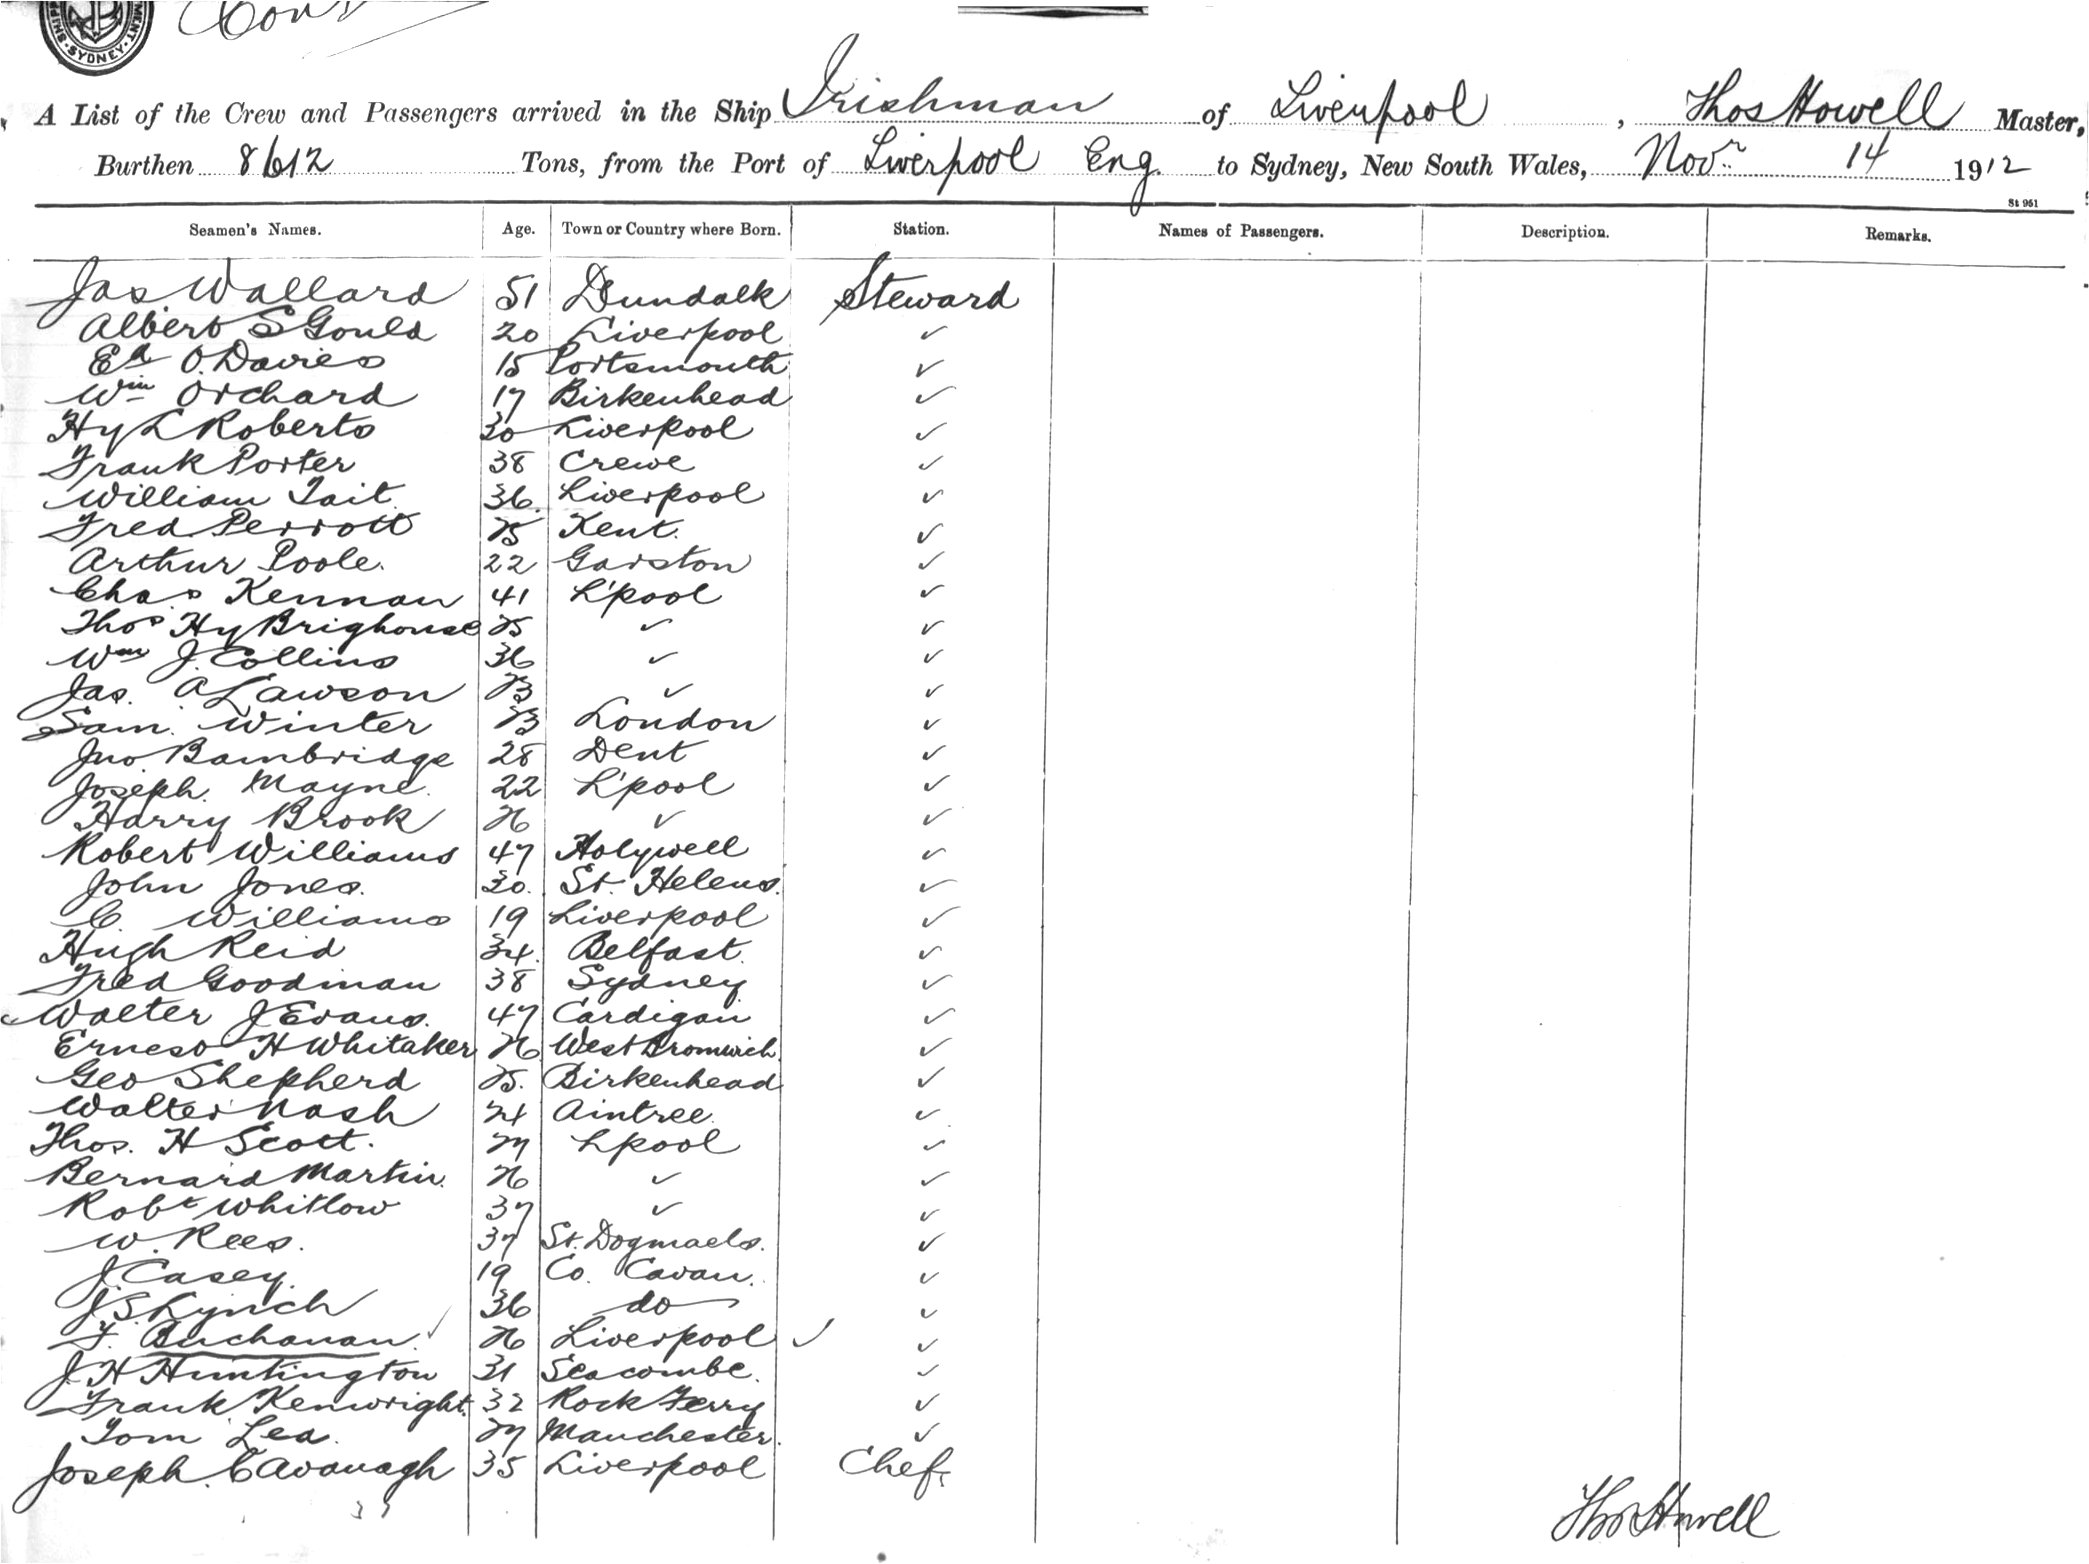 SYDNEY
Cont
A List of the Crew and Passengers arrived in the Ship Irishman of Liverpool, Thos Howell Master,
Burthen 8612 Tons, from the Port of Liverpool Eng. to Sydney, New South Wales, Novr 14 1912
St 951
Seamen's Names. Age. Town or Country where Born. Station. Names of Passengers. Description. Remarks.
Jas Wallard 51 Dundalk Steward
Albert S Gould 20 Liverpool ✓
Ed O. Davies 15 Portsmouth ✓
Wm Orchard 17 Birkenhead ✓
Hy L Roberts 30 Liverpool ✓
Frank Porter 38 Crewe ✓
William Tait 36 Liverpool ✓
Fred Perrott 25 Kent. ✓
Arthur Poole. 22 Garston ✓
Chas Kennan 41 L'pool ✓
Thos Hy Brighouse 25 ✓ ✓
Wm J. Collins 36 ✓ ✓
Jas. A Lawson 23 ✓ ✓
Sam. Winter 23 London ✓
Jno. Bambridge 28 Dent ✓
Joseph Mayne. 22 L'pool ✓
Harry Brook 26 ✓ ✓
Robert Williams 47 Holywell ✓
John Jones. 30. St. Helens. ✓
C. Williams 19 Liverpool ✓
Hugh Reid 34. Belfast. ✓
Fred Goodman 38 Sydney ✓
Walter J Evans. 47 Cardigan ✓
Ernest H Whitaker 26 West Bromwich ✓
Geo Shepherd 25. Birkenhead ✓
Walter Nash 24 Aintree. ✓
Thos. H Scott. 27 Lpool ✓
Bernard Martin. 26 ✓ ✓
Robt Whitlow 37 ✓ ✓
W. Rees. 37 St. Dogmaels. ✓
J. Casey. 19 Co. Cavan. ✓
J. S. Lynch 36 do ✓
F. Buchanan. ✓ 26 Liverpool ✓ ✓
J. H Huntington 31 Seacombe. ✓
Frank Kenwright. 32 Rock Ferry ✓
Tom Lea. 27 Manchester. ✓
Joseph Cavanagh 35 Liverpool Chef.
Thos Howell